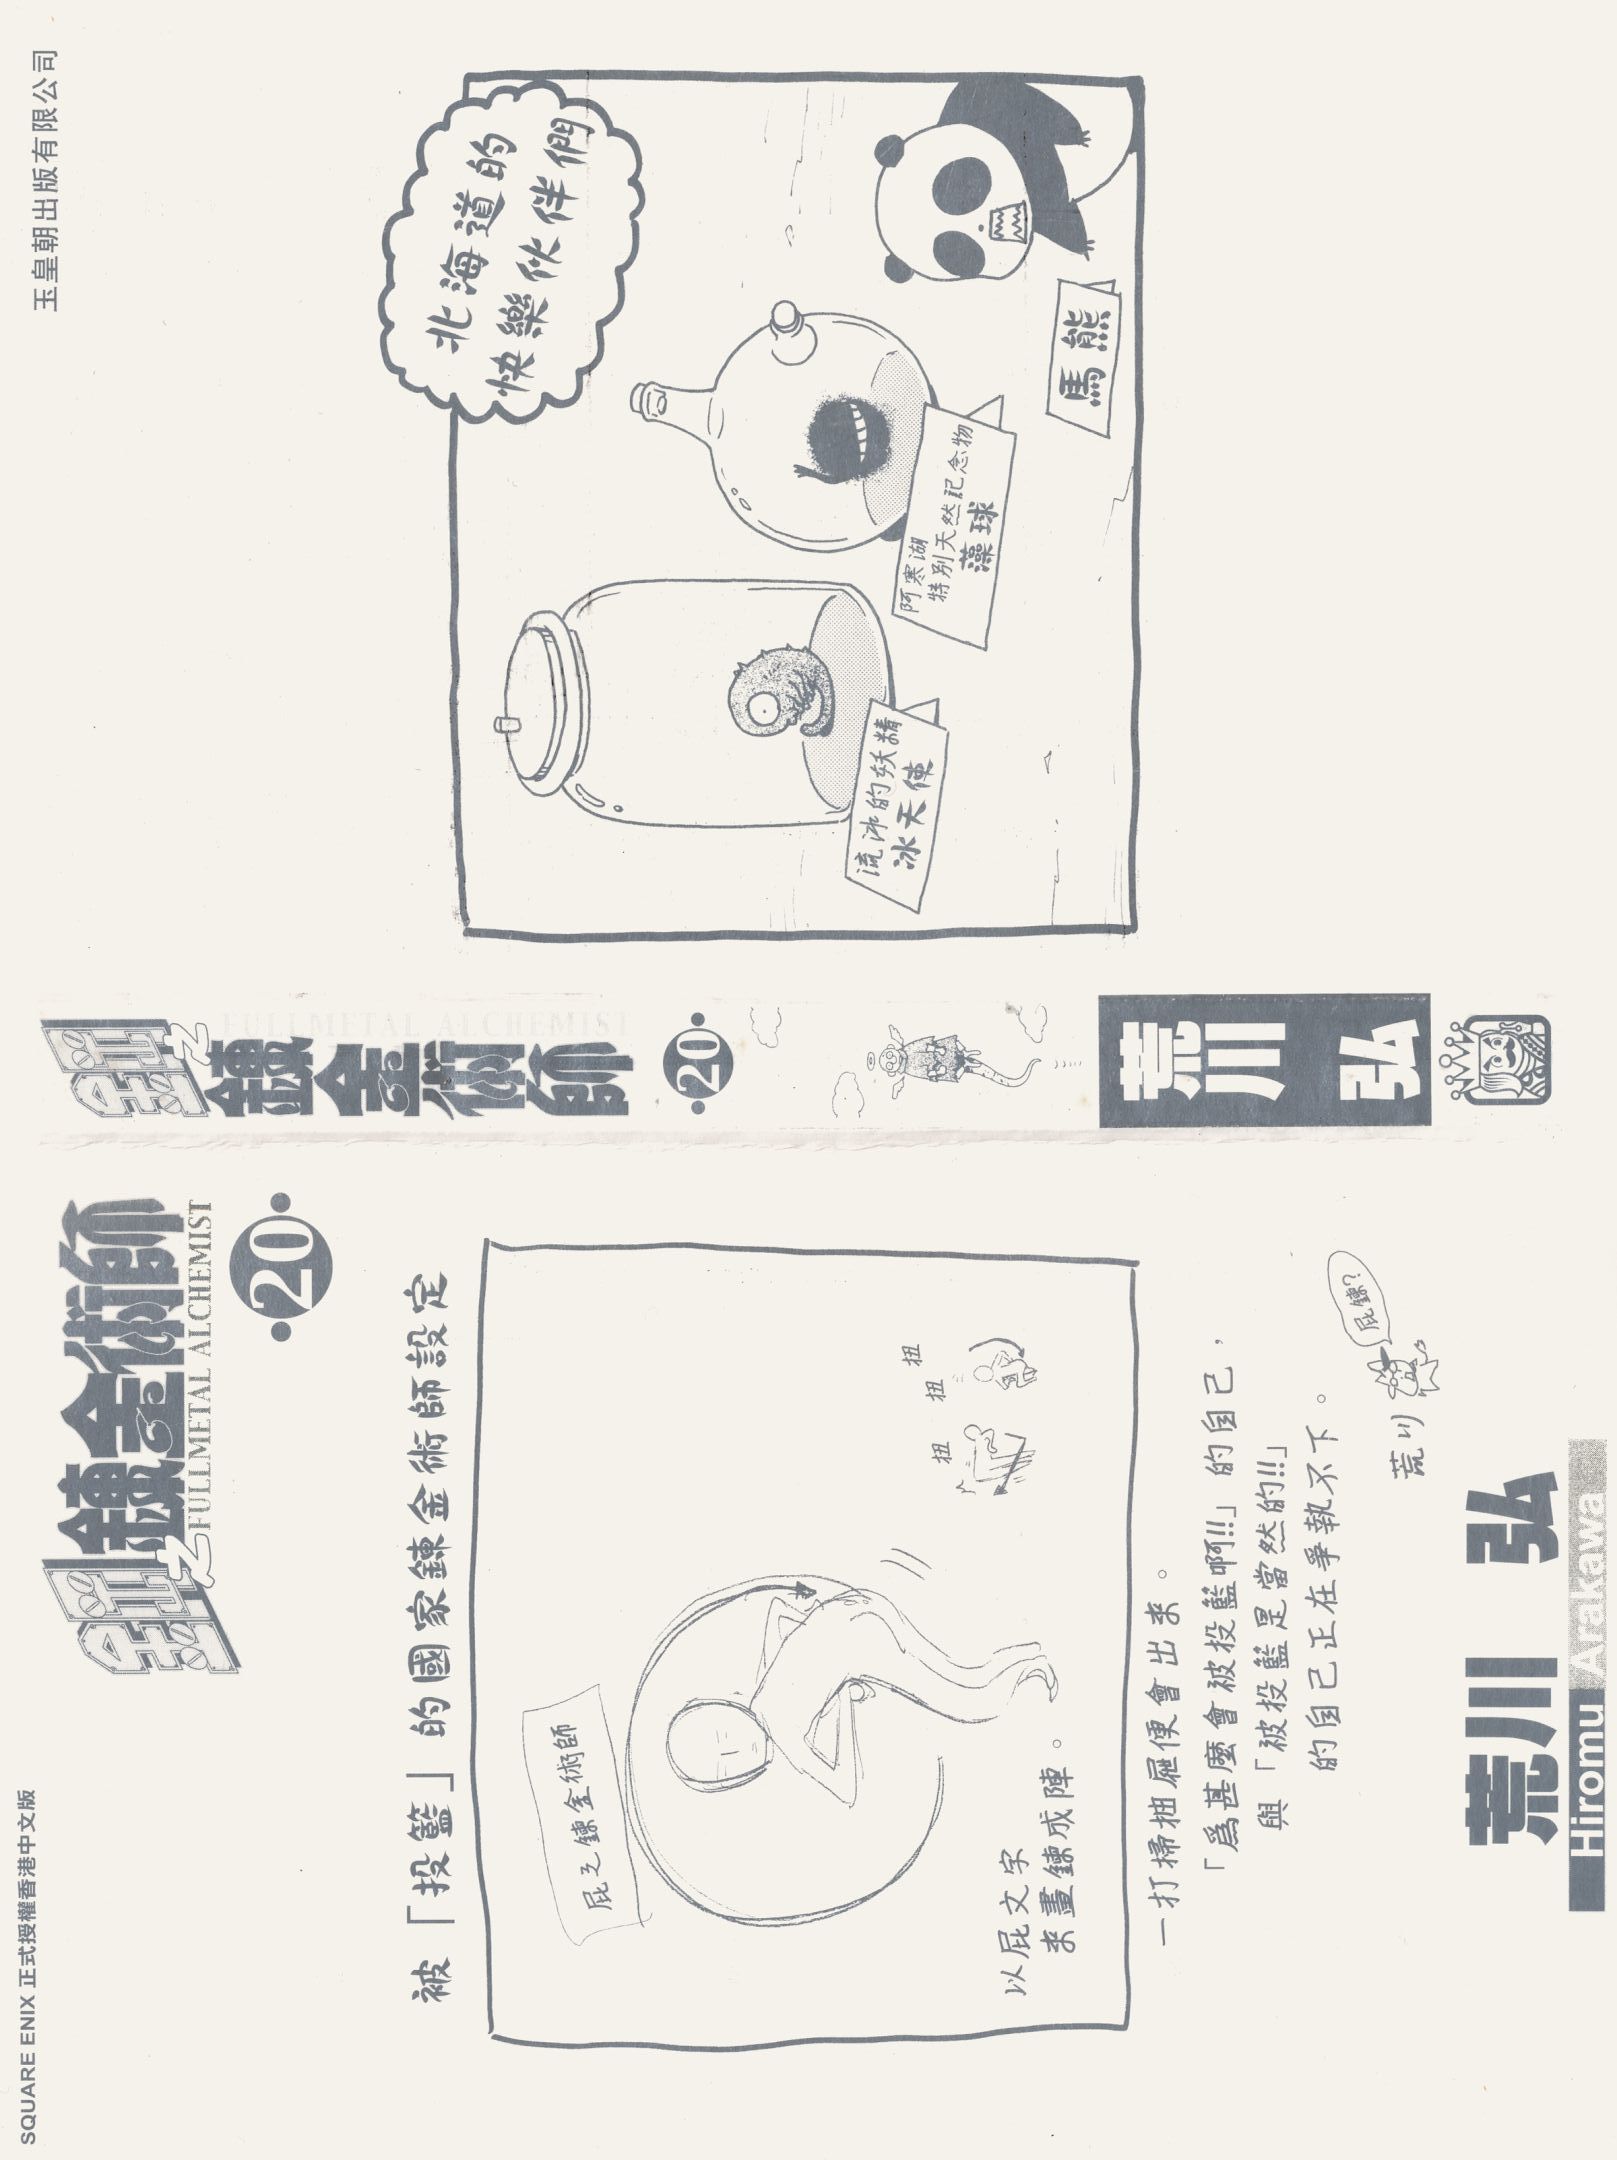 SQUARE ENIX 正式授權香港中文版
鋼之鍊金術師
FULLMETAL ALCHEMIST
20
被「投籃」的國家鍊金術師設定
屁之鍊金術師
扭
扭
扭
以屁文字
來畫鍊成陣。
一打掃抽屜便會出來。
「爲甚麼會被投籃啊!!」的自己，
與「被投籃是當然的!!」
的自己正在爭執不下。
屁鍊?
荒川
荒川 弘
Hiromu Arakawa
鋼之鍊金術師
FULLMETAL ALCHEMIST
20
荒川 弘
玉皇朝出版有限公司
北海道的
快樂伙伴們
流冰的妖精
冰天使
阿寒湖
特別天然記念物
藻球
馬熊